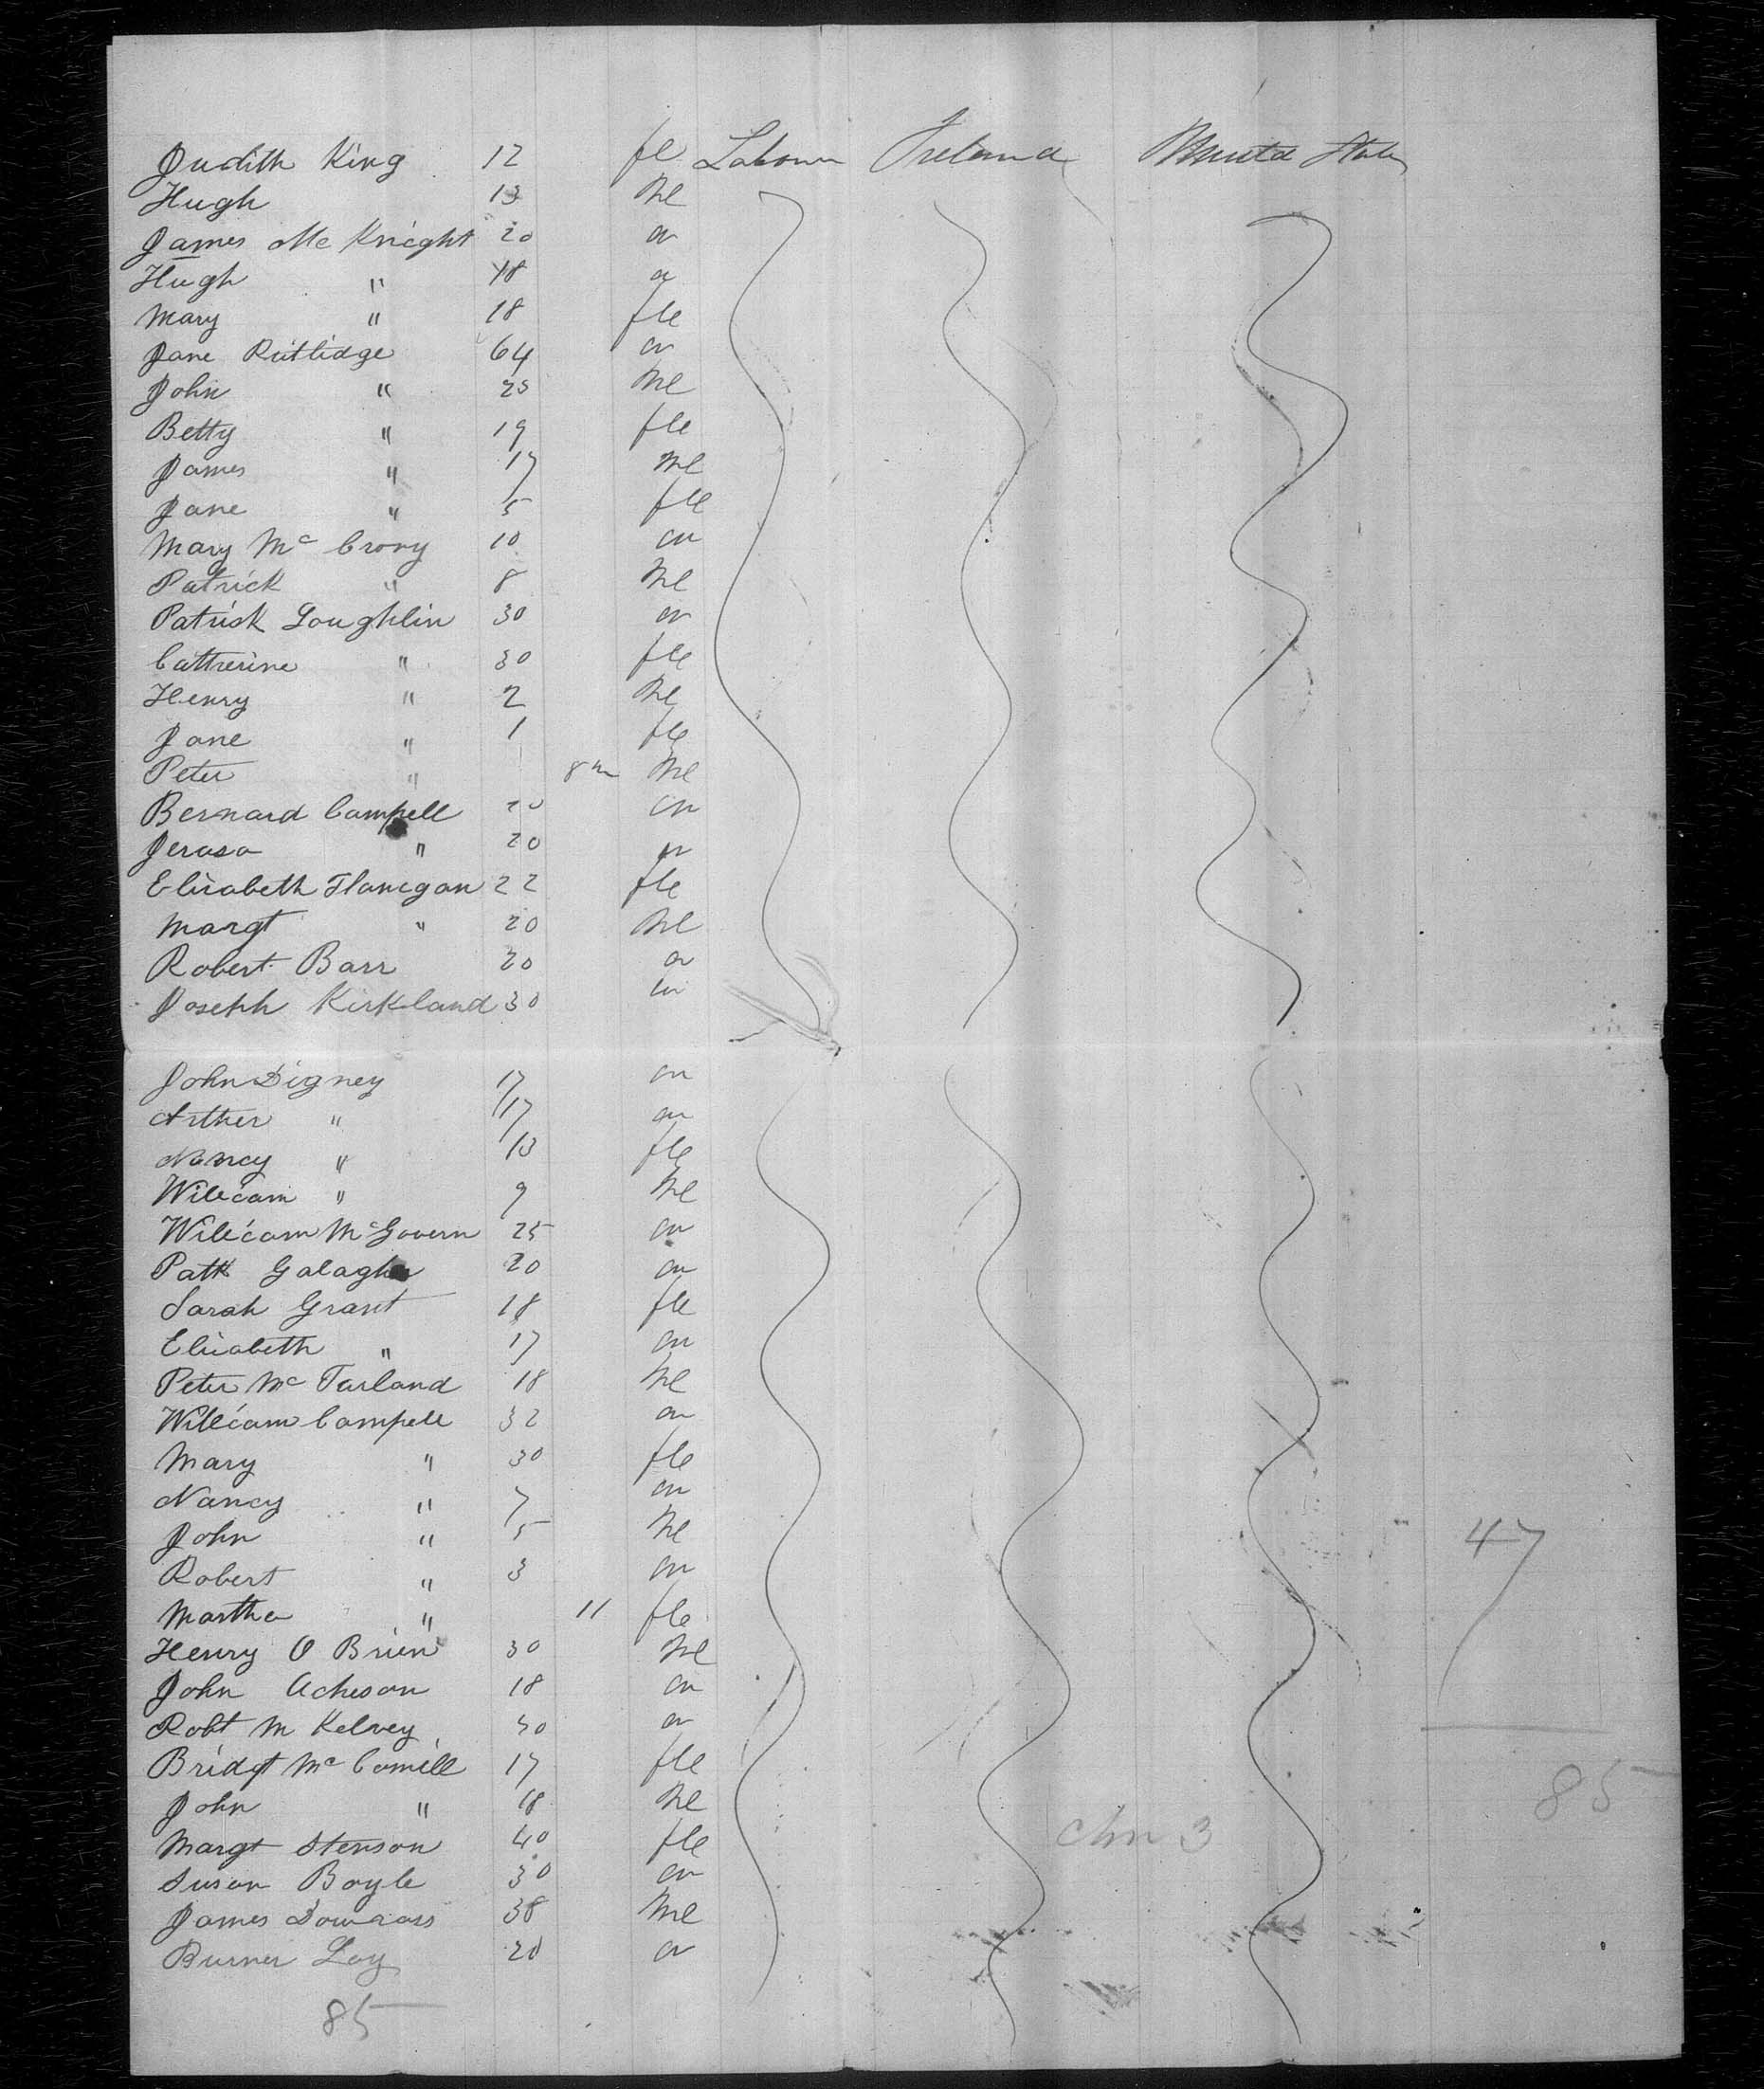 Judith King 12 fe Labour Ireland United States
Hugh 13 Me
James Mc Knight 20 "
Hugh " 18 "
Mary " 18 fle
Jane Rutlidge 64 "
John " 25 Me
Betty " 19 fle
James " 17 Me
Jane " 5 fle
Mary Mc Crory 10 "
Patrick " 8 Me
Patrick Loughlin 30 "
Catherine " 30 fle
Henry " 2 Me
Jane " 1 fle
Peter " 8 m Me
Bernard Campell 20 "
" 20 "
Elisabeth Flanegan 22 fle
Margt " 20 Me
Robert Barr 20 "
Joseph Kirkland 30 "
John Digney 17 "
Arther " 17 "
Nancy " 13 fle
William " 9 Me
William McGovern 25 "
Patk Galagher 20 "
Sarah Grant 18 fle
Elisabeth " 17 "
Peter Mc Farland 18 Me
William Campell 32 "
Mary " 30 fle
Nancy " 7 "
John " 5 Me
Robert " 3 "
Martha " 11 fle
Henry O Brien 30 Me
John Acheson 18 "
Robt M Kelvey 30 "
Bridgt Mc Comill 17 fle
John " 18 Me
Margt Stenson 40 fle
Susan Boyle 30 "
James 38 Me
Burner Loy 20 "
85
47
85
chn 3